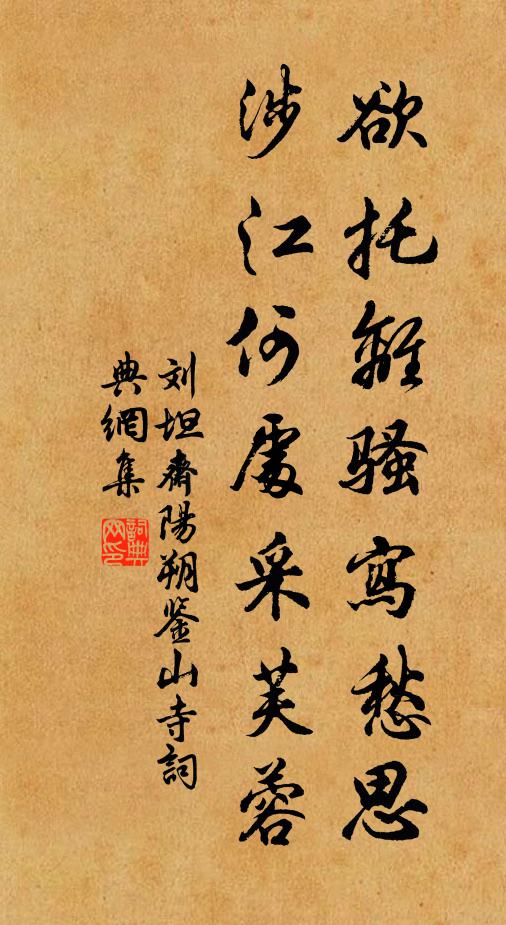 欲托離騷寫愁思
涉江何處采芙蓉
刘坦齋陽朔鉴山寺詞
典網集
詞典網印